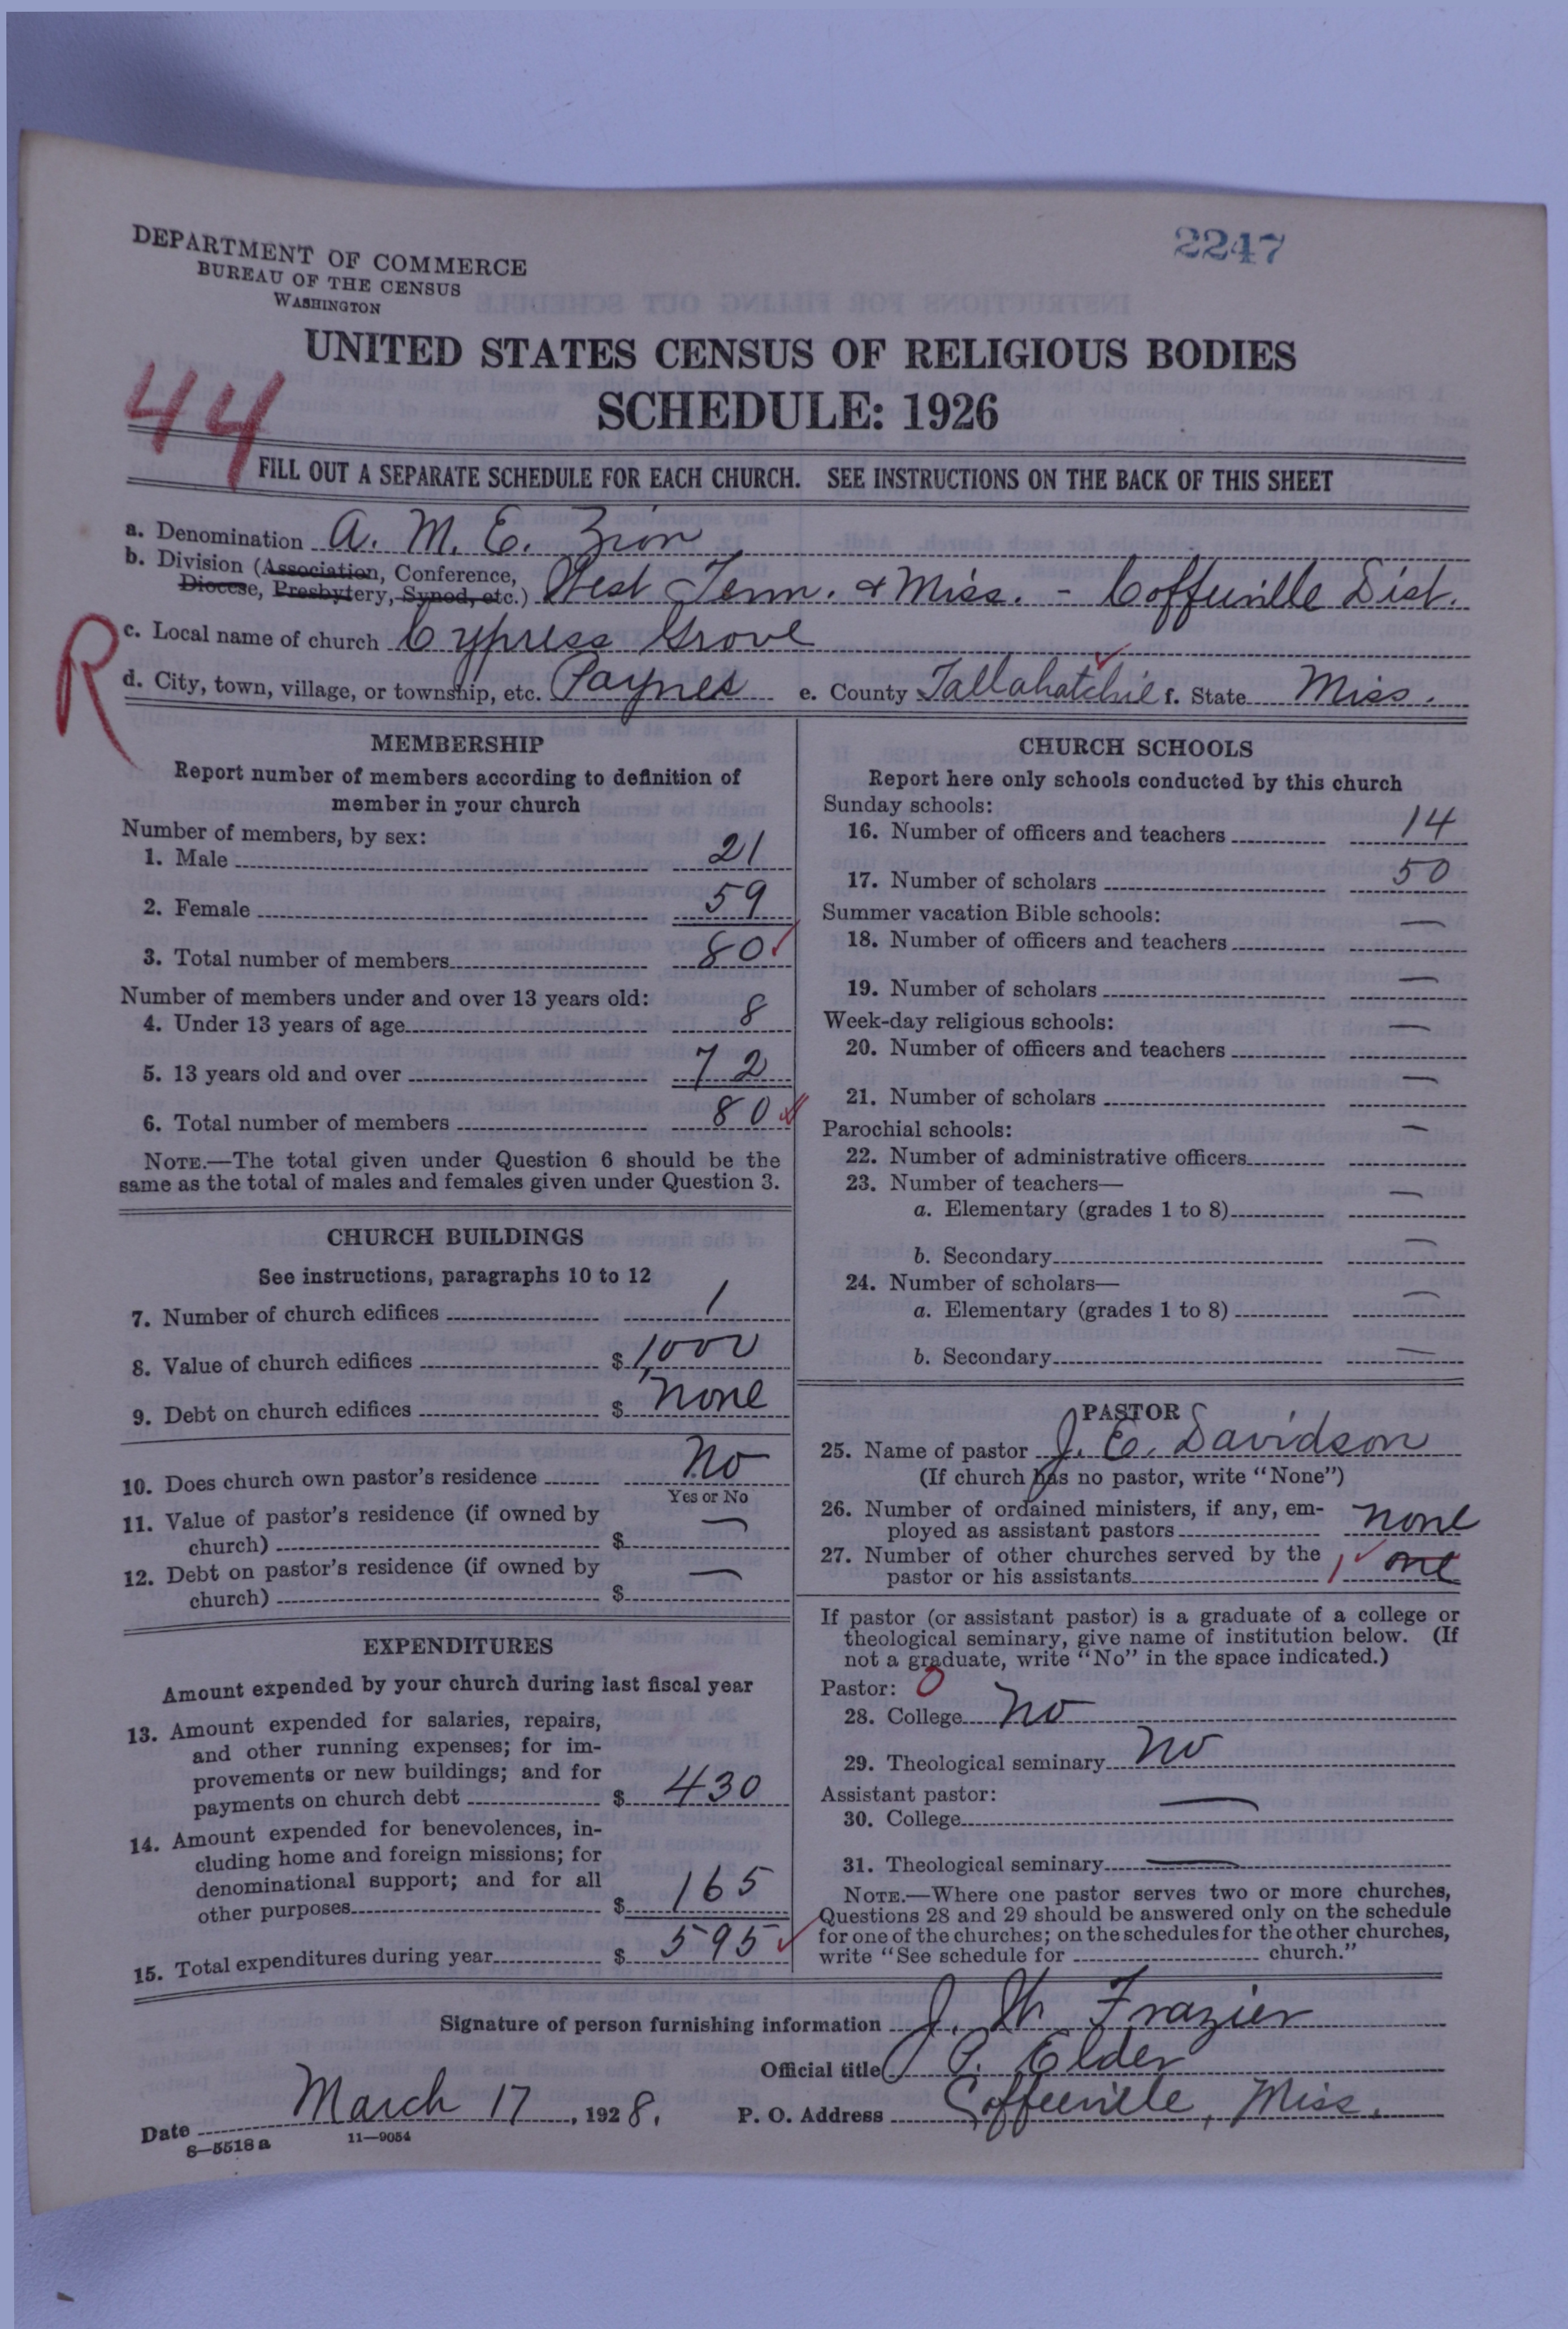 2247
DEPARTMENT OF COMMERCE
BUREAU OF THE CENSUS
WASHINGTON
UNITED STATES CENSUS OF RELIGIOUS BODIES
SCHEDULE: 1926
44
FILL OUT A SEPARATE SCHEDULE FOR EACH CHURCH. SEE INSTRUCTIONS ON THE BACK OF THIS SHEET
a. Denomination A. M. E. Zion
b. Division (Association, Conference,
Diocese, Presbytery, Synod, etc.) West Tenn. & Miss. - Coffeeville Dist.
R
c. Local name of church Cypress Grove
d. City, town, village, or township, etc. Paynes e. County Tallahatchie f. State Miss.
MEMBERSHIP
Report number of members according to definition of
member in your church
Number of members, by sex:
1. Male 21
2. Female 59
3. Total number of members 80
Number of members under and over 13 years old:
4. Under 13 years of age 8
5. 13 years old and over 72
6. Total number of members 80
NOTE.—The total given under Question 6 should be the
same as the total of males and females given under Question 3.
CHURCH BUILDINGS
See instructions, paragraphs 10 to 12
7. Number of church edifices 1
8. Value of church edifices $ 1,000
9. Debt on church edifices $ none
10. Does church own pastor's residence No
Yes or No
11. Value of pastor's residence (if owned by
church) $ —
12. Debt on pastor's residence (if owned by
church) $ —
EXPENDITURES
Amount expended by your church during last fiscal year
13. Amount expended for salaries, repairs,
and other running expenses; for im-
provements or new buildings; and for
payments on church debt $ 430
14. Amount expended for benevolences, in-
cluding home and foreign missions; for
denominational support; and for all
other purposes $ 165
15. Total expenditures during year $ 595
CHURCH SCHOOLS
Report here only schools conducted by this church
Sunday schools:
16. Number of officers and teachers 14
17. Number of scholars 50
Summer vacation Bible schools:
18. Number of officers and teachers —
19. Number of scholars —
Week-day religious schools:
20. Number of officers and teachers —
21. Number of scholars —
Parochial schools:
22. Number of administrative officers —
23. Number of teachers—
a. Elementary (grades 1 to 8) —
b. Secondary —
24. Number of scholars—
a. Elementary (grades 1 to 8) —
b. Secondary —
PASTOR
25. Name of pastor J. E. Davidson
(If church has no pastor, write "None")
26. Number of ordained ministers, if any, em-
ployed as assistant pastors none
27. Number of other churches served by the
pastor or his assistants 1 one
If pastor (or assistant pastor) is a graduate of a college or
theological seminary, give name of institution below. (If
not a graduate, write "No" in the space indicated.)
Pastor: 0
28. College No
29. Theological seminary No
Assistant pastor:
30. College —
31. Theological seminary —
NOTE.—Where one pastor serves two or more churches,
Questions 28 and 29 should be answered only on the schedule
for one of the churches; on the schedules for the other churches,
write "See schedule for church."
Signature of person furnishing information J. W. Frazier
Official title P. Elder
Date March 17, 1928. P. O. Address Coffeeville, Miss.
8—5518 a 11—9054